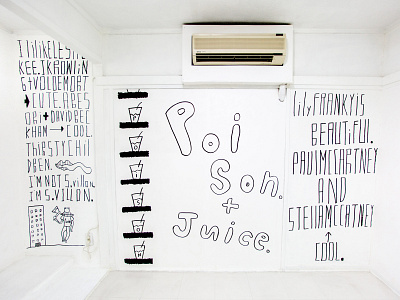 KEE. JKROWLIN
G+VOLDEMORT
→CUTE. APES
ORI+DAVIDBEC
KHAM → COOL.
THIRSTYCHIL
DREN.
I'M NOT S.villon.
I'M S.VILLON.
Poi
Son.
+
Juice.
lily FRANKYiS
BEAUTiFUL.
PAUlMCCARTNEY
AND
STEllAMCCARTNEY
↑
COOL.